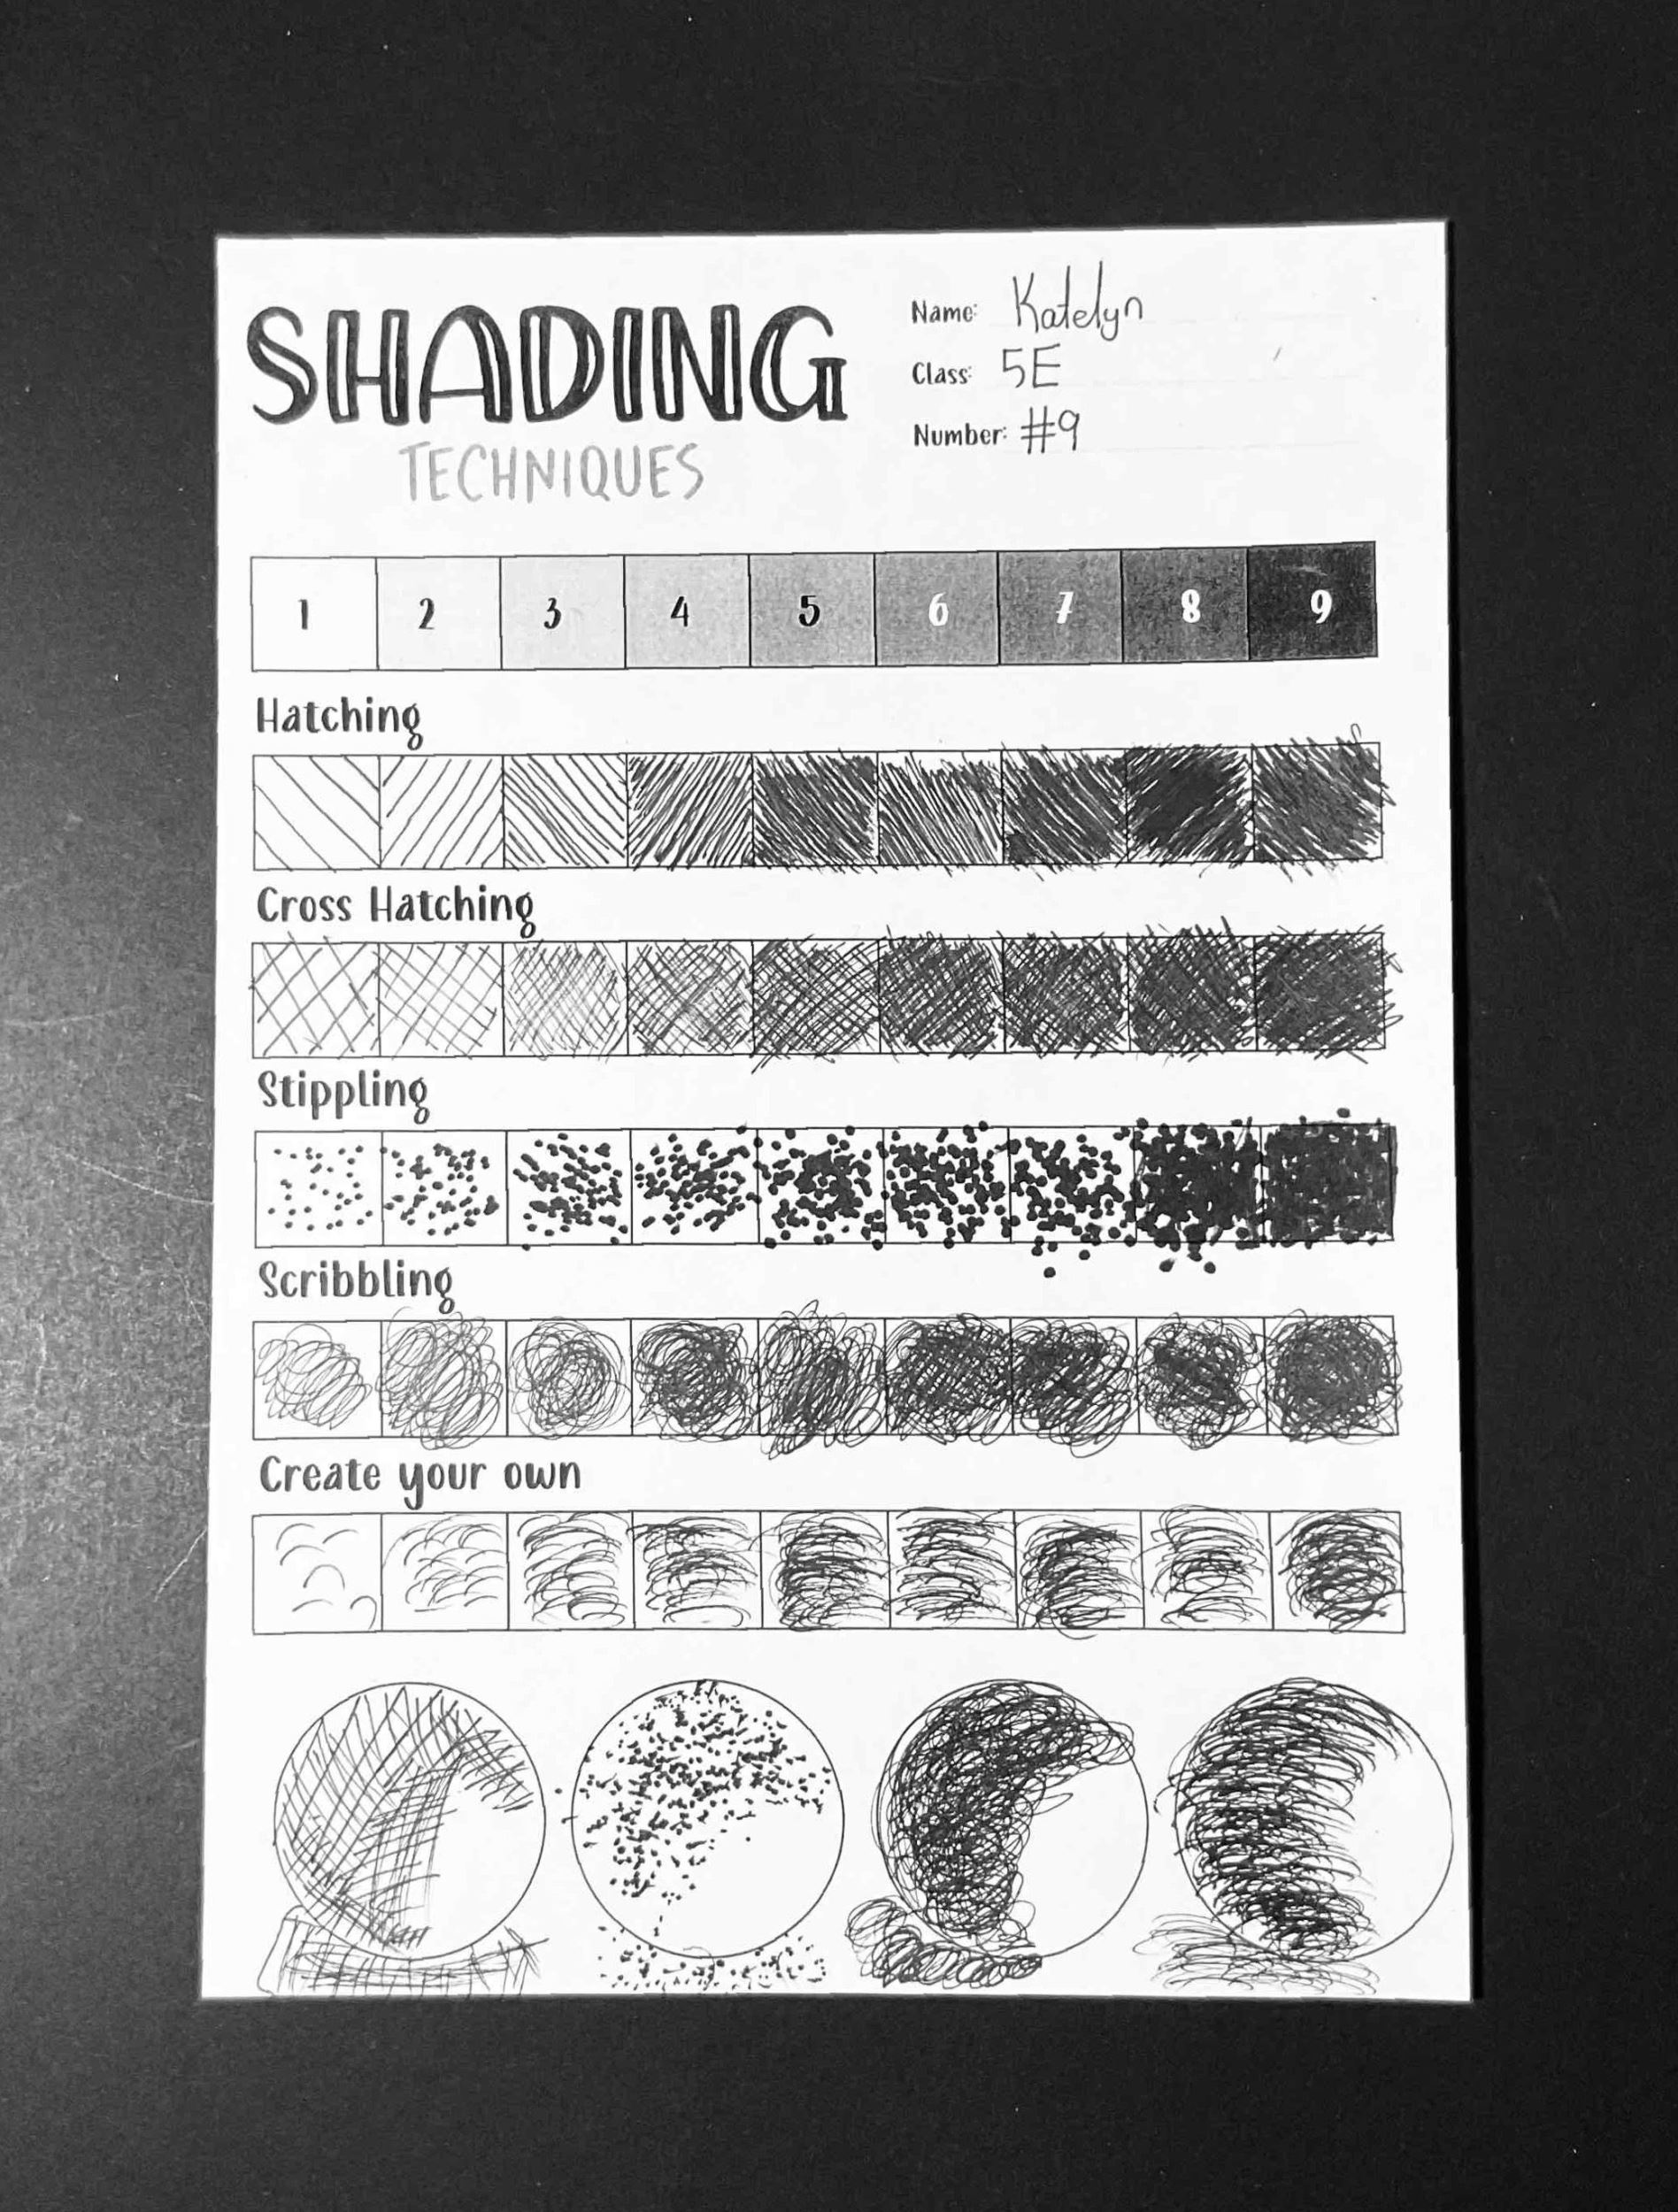 SHADING
TECHNIQUES
Name: Katelyn
Class: 5E
Number: #9
1 2 3 4 5 6 7 8 9
Hatching
Cross Hatching
Stippling
Scribbling
Create your own